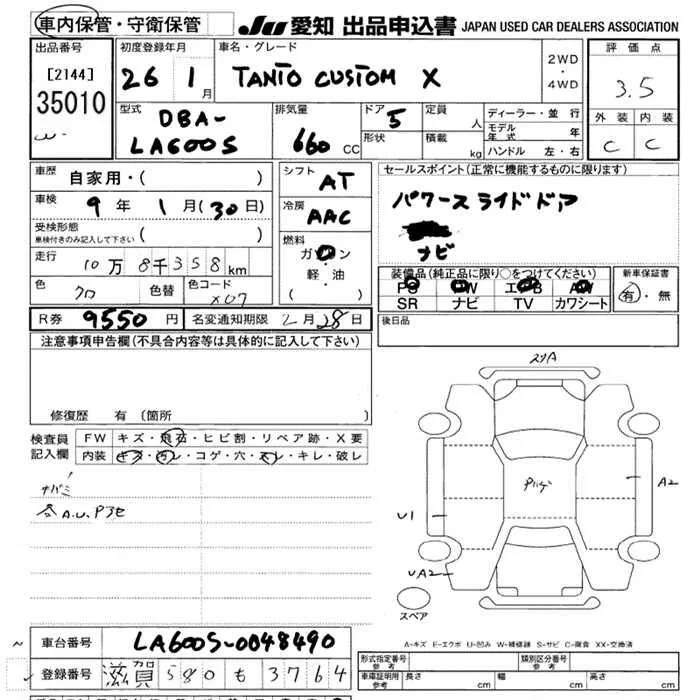 車内保管・守衛保管
JU 愛知 出品申込書 JAPAN USED CAR DEALERS ASSOCIATION
出品番号
[2144]
35010
初度登録年月
26 1月
車名・グレード
TANTO CUSTOM X
2WD
・
4WD
評価点
3.5
外装 内装
C C
型式
DBA-
LA600S
排気量
660 CC
ドア
5
形状
定員
人
積載
kg
ディーラー・並行
モデル年式 年
ハンドル 左・右
車歴
自家用・( )
車検
9年1月(30日)
受検形態
車検付きのみ記入して下さい ( )
走行
10万8千358km
色
クロ
色替
色コード
X07
シフト
AT
冷房
AAC
燃料
ガソリン
軽・油
( )
セールスポイント(正常に機能するものに限ります)
パワースライドドア
ナビ
装備品(純正品に限り○をつけてください)
PS PW エアB AW
SR ナビ TV カワシート
新車保証書
有・無
R券 9550円 名変通知期限 2月28日
後日品
注意事項申告欄(不具合内容等は具体的に記入して下さい)
修復歴 有 (箇所 )
検査員
記入欄
FW キズ・飛石・ヒビ割・リペア跡・X要
内装 キズ・汚レ・コゲ・穴・スレ・キレ・破レ
A.U.Pキセ
A2
U1
UA2
スペア
A-キズ E-エクボ U-凹み W-補修跡 S-サビ C-腐食 XX-交換済
車台番号 LA600S-0048490
登録番号 滋賀 580 も 3764
形式指定番号
参考
類別区分番号
参考
車庫証明用
参考
長さ cm 幅 cm 高さ cm